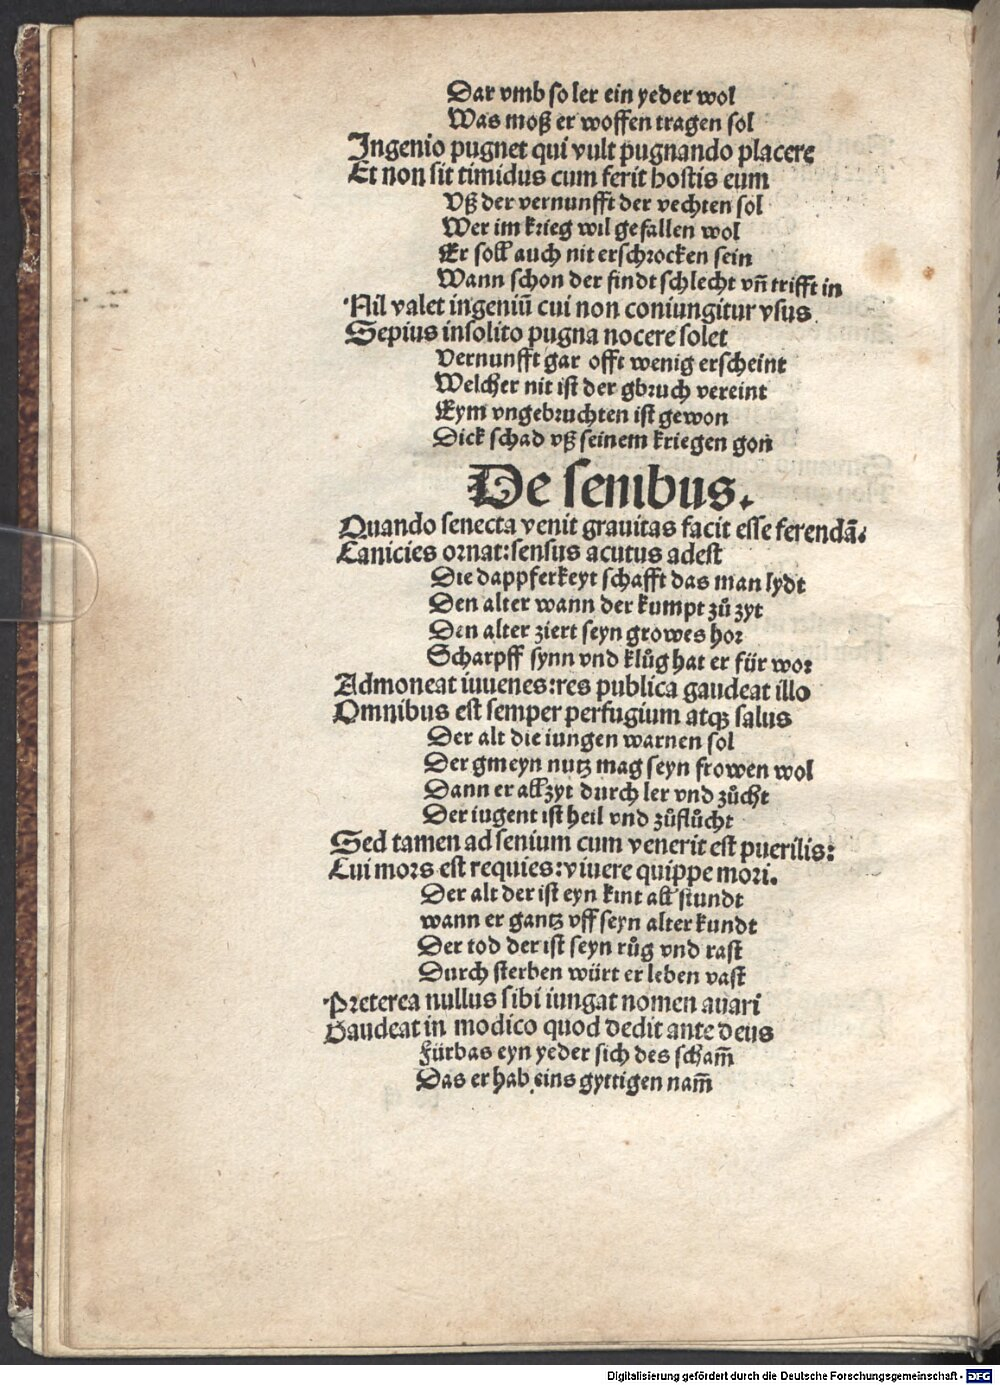 Dar vmb so ler ein yeder wol
Was moß er woffen tragen sol
Ingenio pugnet qui vult pugnando placere
Et non sit timidus cum ferit hostis eum
Vß der vernunfft der vechten sol
Wer im krieg wil gefallen wol
Er soll auch nit erschrocken sein
Wann schon der findt schlecht vñ trifft in
Nil valet ingeniū cui non coniungitur vsus
Sepius insolito pugna nocere solet
Vernunfft gar offt wenig erscheint
Welcher nit ist der gbruch vereint
Eym vngebruchten ist gewon
Dick schad vß seinem kriegen gon
De senibus.
Quando senecta venit grauitas facit esse ferendā.
Canicies ornat: sensus acutus adest
Die dappferkeyt schafft das man lydt
Den alter wann der kumpt zů zyt
Den alter ziert seyn growes hor
Scharpff synn vnd klůg hat er für wor
Admoneat iuuenes: res publica gaudeat illo
Omnibus est semper perfugium atqꝫ salus
Der alt die iungen warnen sol
Der gmeyn nutz mag seyn frowen wol
Dann er allzyt durch ler vnd zůcht
Der iugent ist heil vnd zůflůcht
Sed tamen ad senium cum venerit est puerilis:
Cui mors est requies: viuere quippe mori.
Der alt der ist eyn kint all stundt
wann er gantz vff seyn alter kundt
Der tod der ist seyn růg vnd rast
Durch sterben würt er leben vast
Preterea nullus sibi iungat nomen auari
Gaudeat in modico quod dedit ante deus
Fürbas eyn yeder sich des scham̄
Das er hab eins gyttigen nam̄
Digitalisierung gefördert durch die Deutsche Forschungsgemeinschaft - DFG